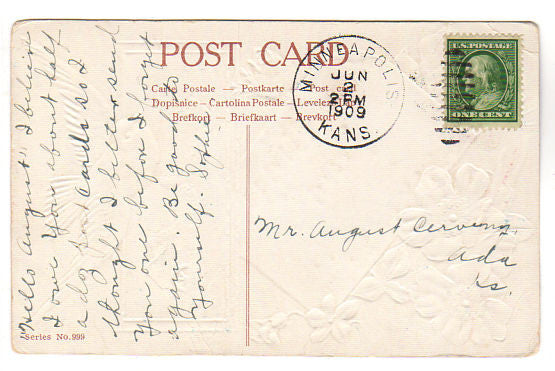 POST CARD
Carte Postale — Postkarte — Post card
Dopisnice — Cartolina Postale — Levelező
Brefkort — Briefkaart — Brevkort
MINNEAPOLIS
JUN
2
2 PM
1909
KANS.
U.S. POSTAGE
ONE CENT
Hello August, I believe
I owe you about half
a doz post cards so I
thought I better send
you one before I forget
again. Be good to
yourself. Sophie
Mr. August Cerveny,
Ada
Ks.
Series No. 999